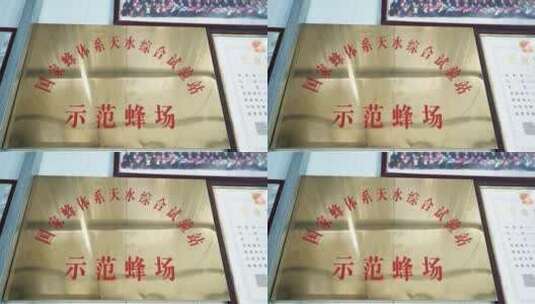 国家蜂体系天水综合试验站
示范蜂场
国家蜂体系天水综合试验站
示范蜂场
国家蜂体系天水综合试验站
示范蜂场
国家蜂体系天水综合试验站
示范蜂场